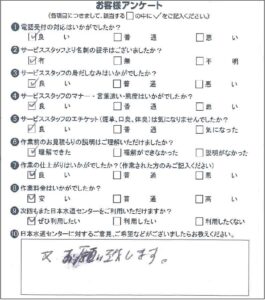 お客様アンケート
(各項目につきまして、該当する□の中に✓をご記入ください。)
❶電話受付の対応はいかがでしたか？
☑良い □普通 □悪い
❷サービススタッフより名刺の提示はございましたか？
☑有 □無 □不明
❸サービススタッフの身だしなみはいかがでしたか？
☑良い □普通 □悪い
❹サービススタッフのマナー・言葉遣い・態度はいかがでしたか？
☑良い □普通 □悪い
❺サービススタッフのエチケット(煙草、口臭、体臭)は気になりませんでしたか？
☑良い □普通 □気になった
❻作業前のお見積もりの説明はご理解いただけましたか？
☑理解できた □理解ができなかった □説明がなかった
❼作業の仕上がりはいかがでしたか？(作業された方のみご記入ください)
☑良い □普通 □悪い
❽作業料金はいかがでしたか？
☑安い □普通 □高い
❾次回もまた日本水道センターをご利用いただけますか？
☑ぜひ利用したい □利用したい □利用したくない
❿日本水道センターに対するご意見、ご希望などがございましたらお教えください。
又お願い致します。